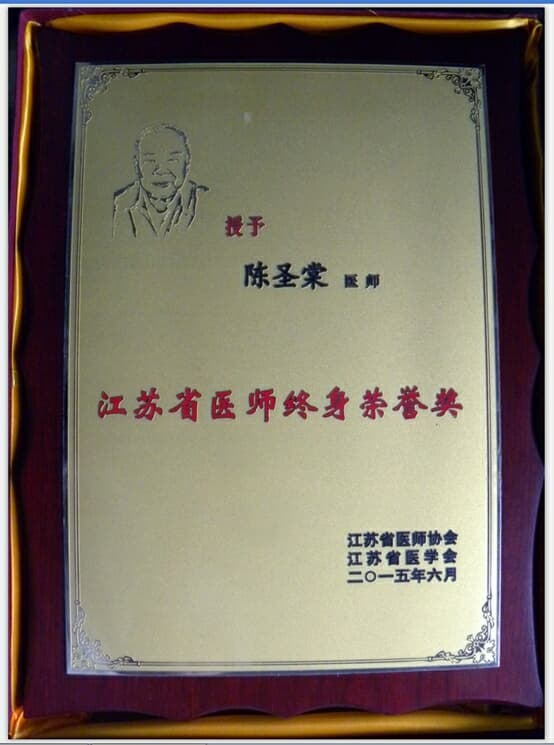 授予
陈圣棠 医师
江苏省医师终身荣誉奖
江苏省医师协会
江苏省医学会
二〇一五年六月